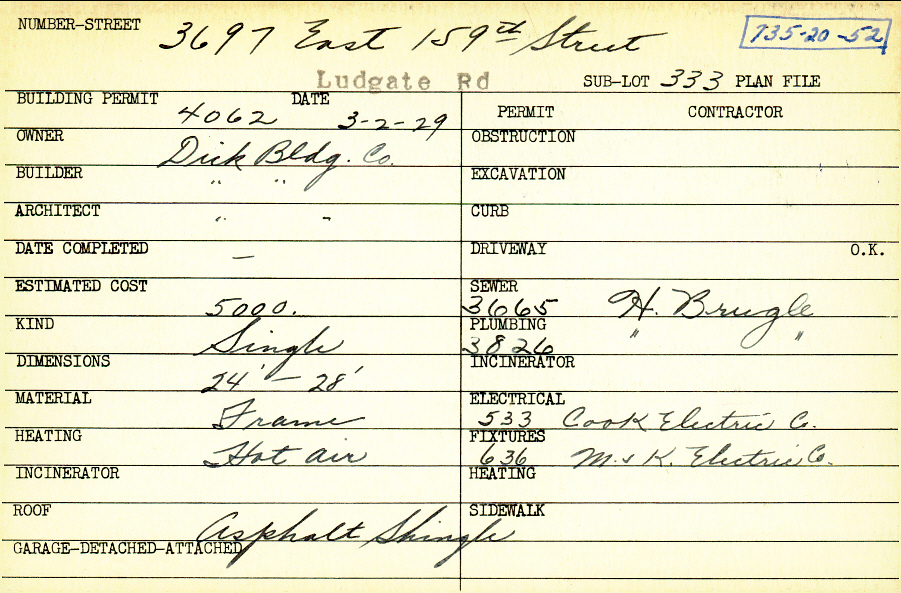 NUMBER-STREET 3697 East 159th Street 735-20-52
Ludgate Rd SUB-LOT 333 PLAN FILE
BUILDING PERMIT 4062 DATE 3-2-29 PERMIT CONTRACTOR
OWNER Dick Bldg. Co. OBSTRUCTION
BUILDER " " EXCAVATION
ARCHITECT " " CURB
DATE COMPLETED — DRIVEWAY O.K.
ESTIMATED COST 5000. SEWER 3665 H. Brugle
KIND Single PLUMBING 3826 " "
DIMENSIONS 24' — 28' INCINERATOR
MATERIAL Frame ELECTRICAL 533 Cook Electric Co.
HEATING Hot air FIXTURES 636 M. & K. Electric Co.
INCINERATOR HEATING
ROOF Asphalt Shingle SIDEWALK
GARAGE-DETACHED-ATTACHED